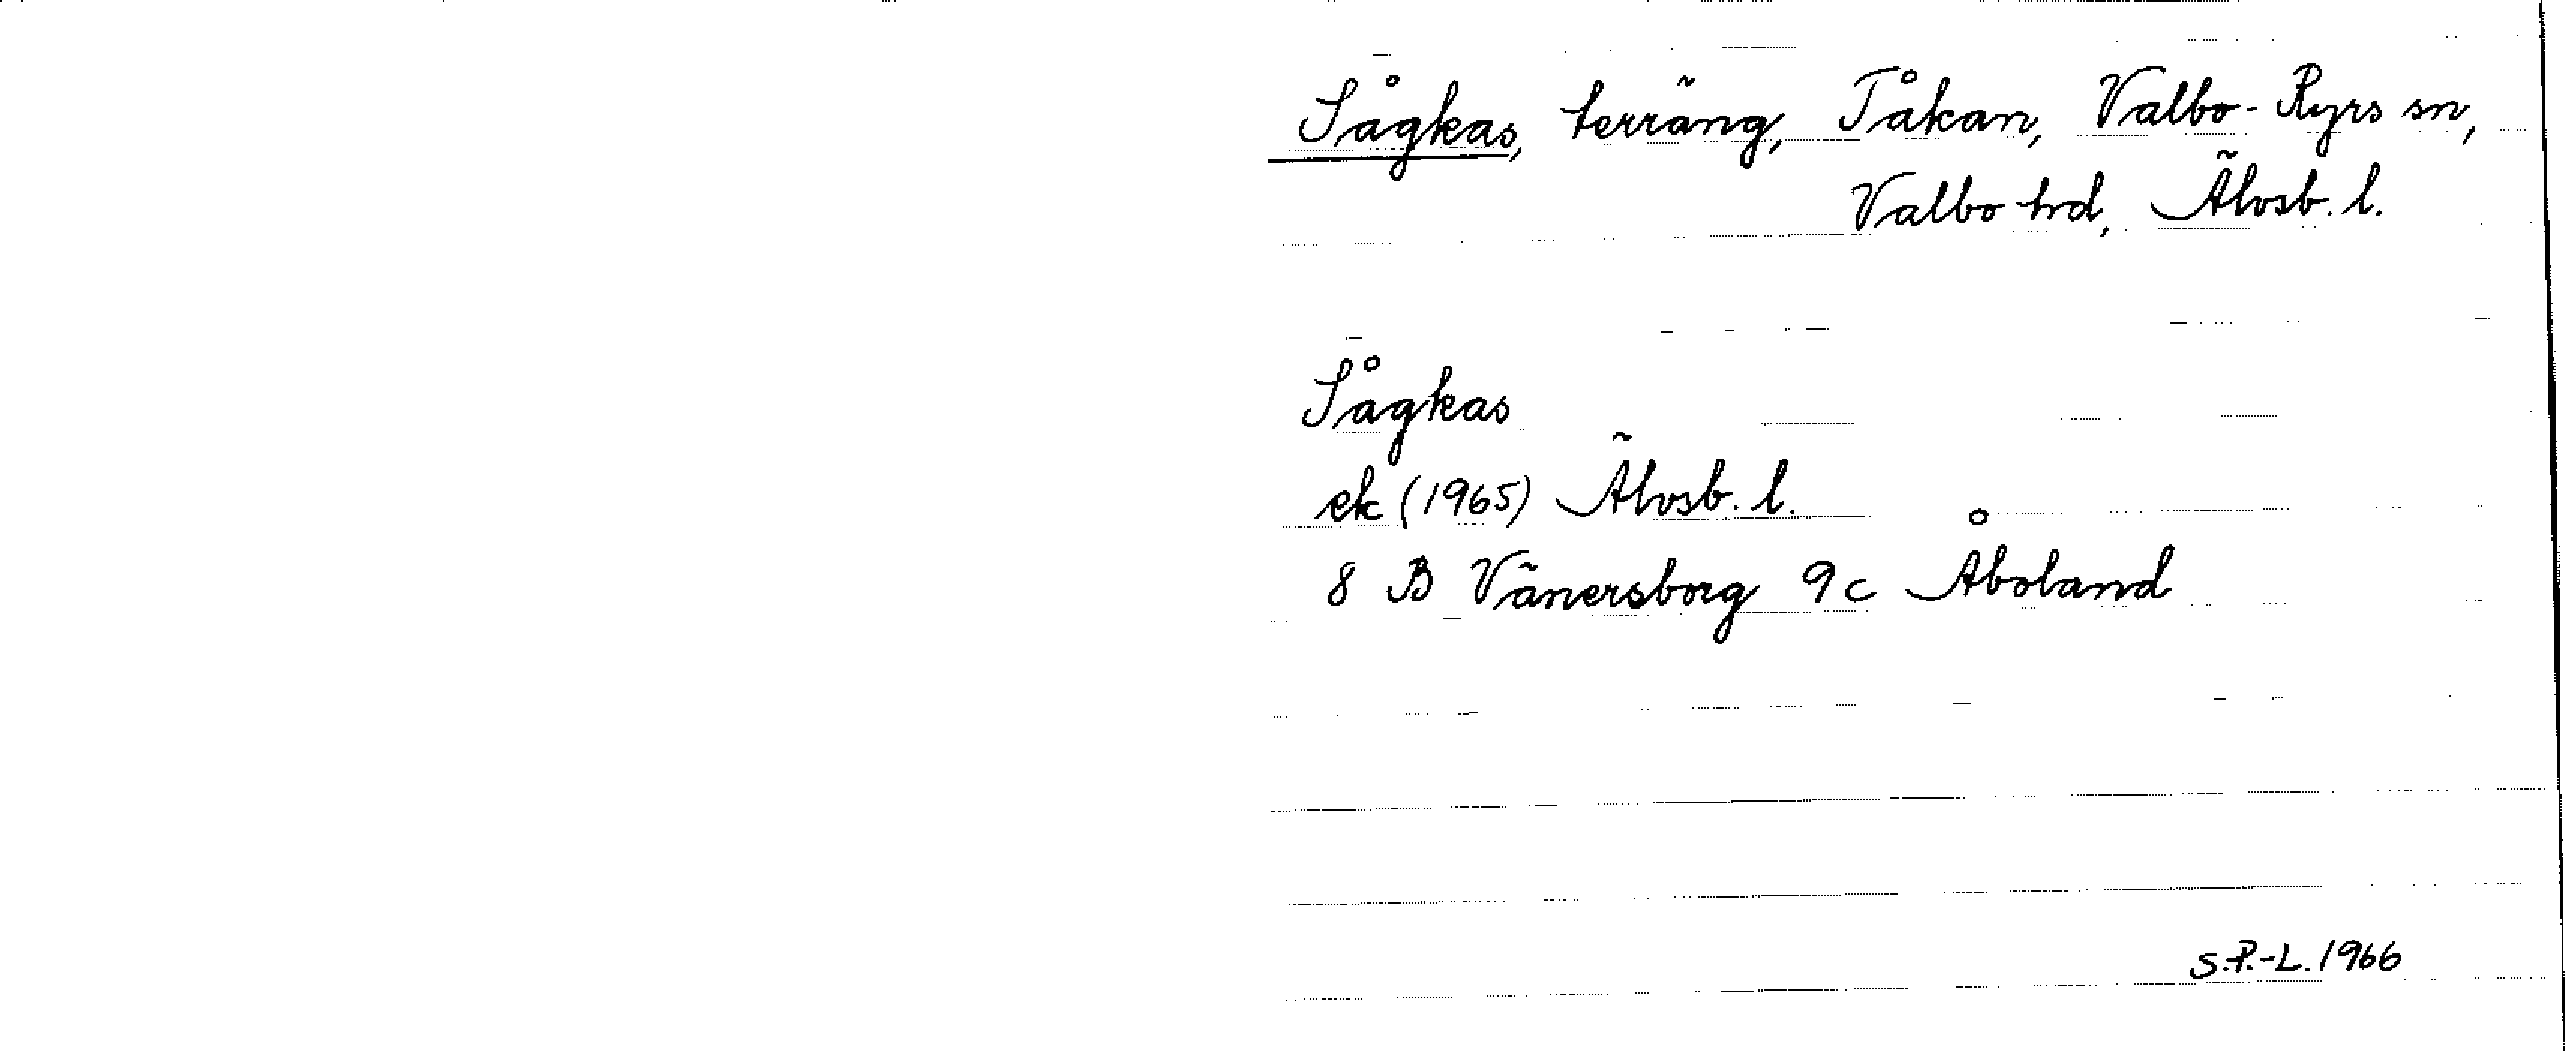 Sågkas, terräng, Tåkan, Valbo-Ryrs sn,
Valbo hd, Älvsb. l.
Sågkas
ek (1965) Älvsb. l.
8 B Vänersborg 9c Åboland
S.P.-L. 1966